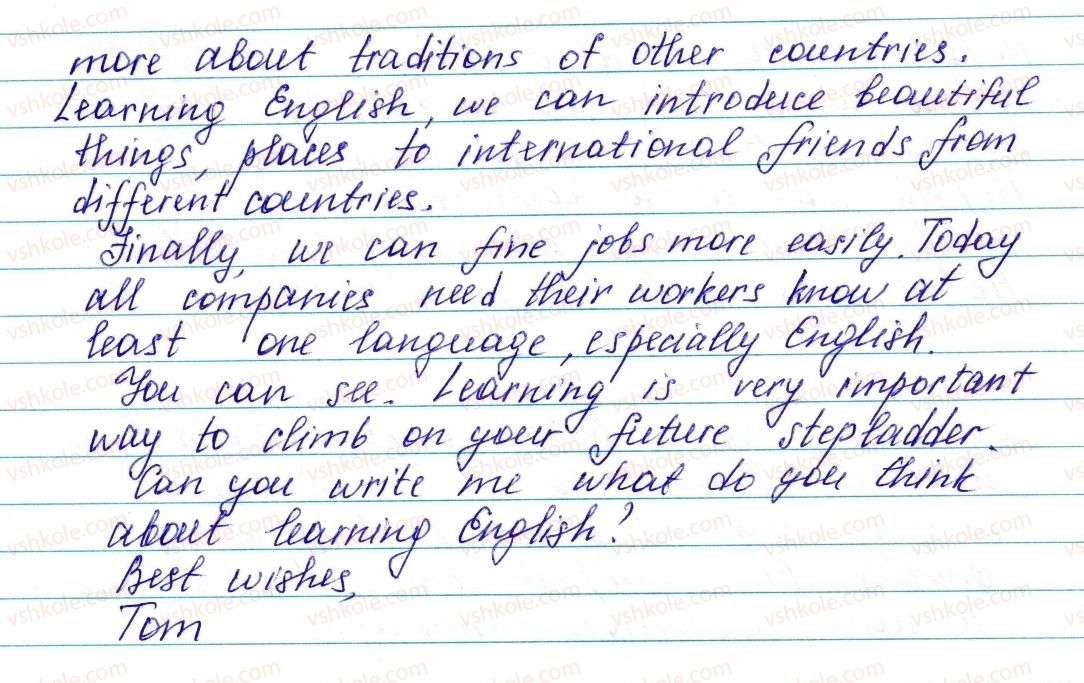 more about traditions of other countries.
Learning English, we can introduce beautiful
things, places to international friends from
different countries.
Finally, we can fine jobs more easily. Today
all companies need their workers know at
least one language, especially English.
You can see. Learning is very important
way to climb on your future stepladder.
Can you write me what do you think
about learning English?
Best wishes,
Tom
vshkole.com